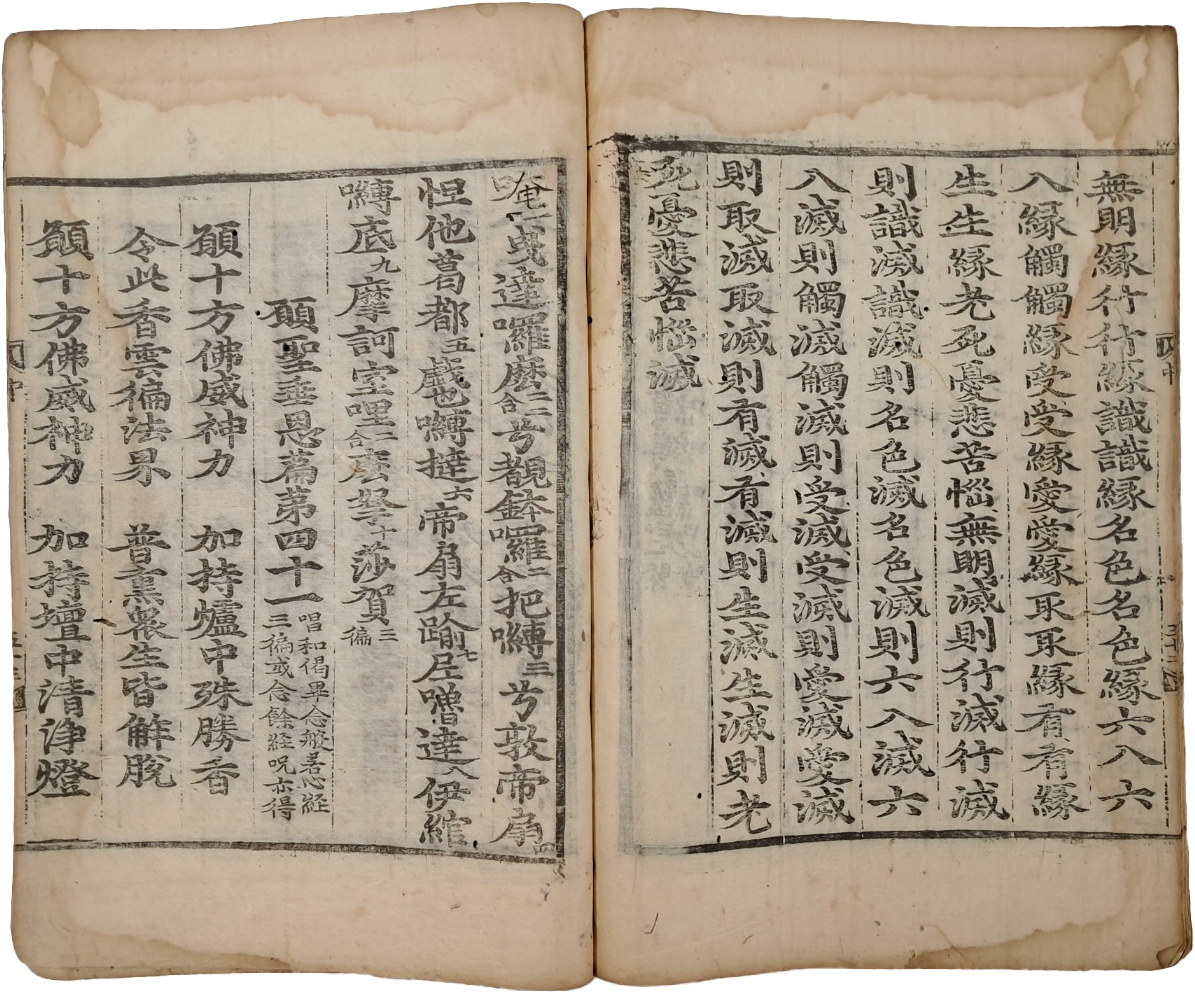 無明縁行行縁識識縁名色名色縁六入六
入縁觸觸縁受受縁愛愛縁取取縁有有縁
生生縁老死憂悲苦惱無明滅則行滅行滅
則識滅識滅則名色滅名色滅則六入滅六
入滅則觸滅觸滅則受滅受滅則愛滅愛滅
則取滅取滅則有滅有滅則生滅生滅則老
死憂悲苦惱滅
唵一曵達囉麽二合二兮覩鉢囉二合把嚩三兮敦帝扇四
怛他葛都五戲也嚩撻六帝扇左踰七𡰱噌達八伊維
嚩底九摩訶室哩二合麽拏十莎賀三徧
願聖垂恩篇第四十一 唱和偈畢念般若心経
三徧或念餘経呪亦得
願十方佛威神力 加持爐中殊勝香
令此香雲徧法界 普熏衆生皆觧脫
願十方佛威神力 加持壇中清浄燈